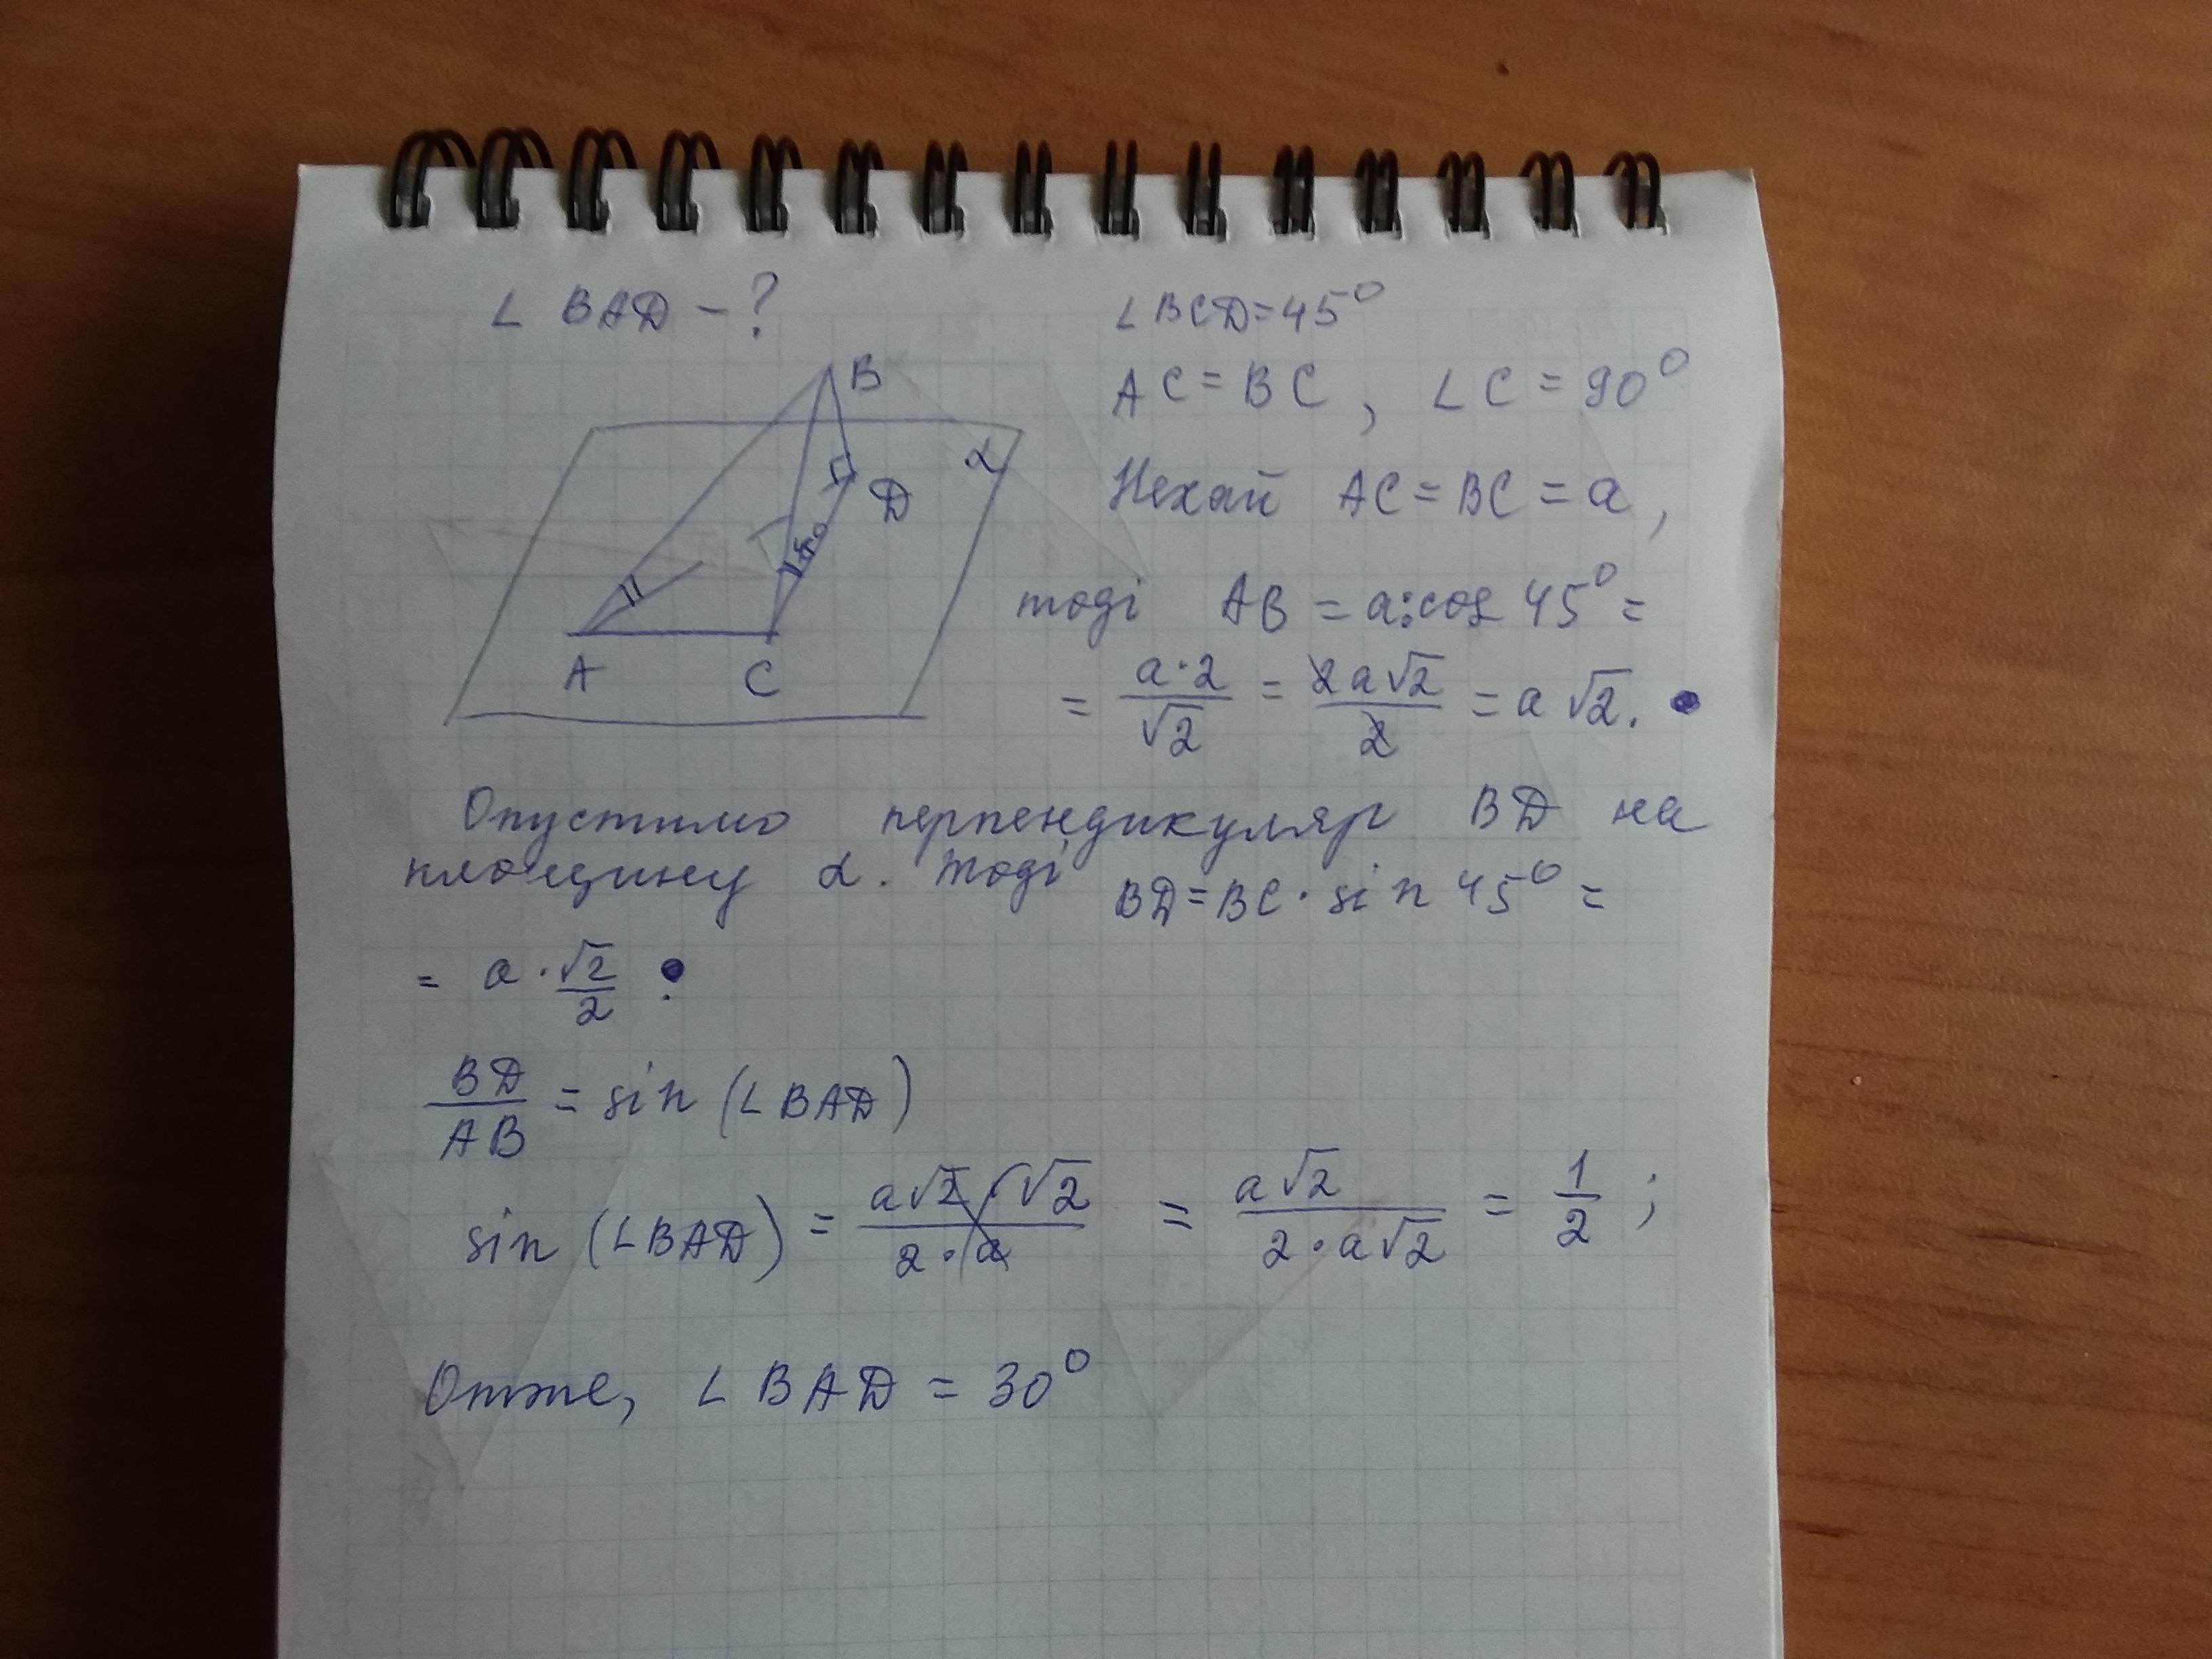 ∠ BAD – ?
∠BCD=45°
B
α
D
45°
A C
AC = BC , ∠C = 90°
Нехай AC = BC = a ,
тоді AB = a:cos 45° =
= a·2/√2 = 2a√2/2 = a√2.
Опустимо перпендикуляр BD на
площину α. Тоді BD=BC·sin 45° =
= a·√2/2 .
BD/AB = sin (∠BAD)
sin (∠BAD) = = a√2/2·a√2 = 1/2 ;
Отже, ∠BAD = 30°